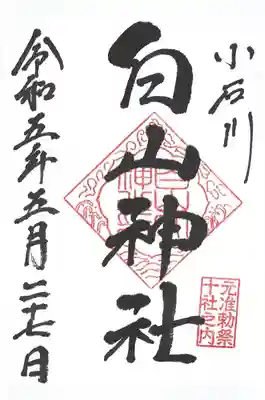 小石川
白山神社
令和五年五月二十七日
元准勅祭
十社之内